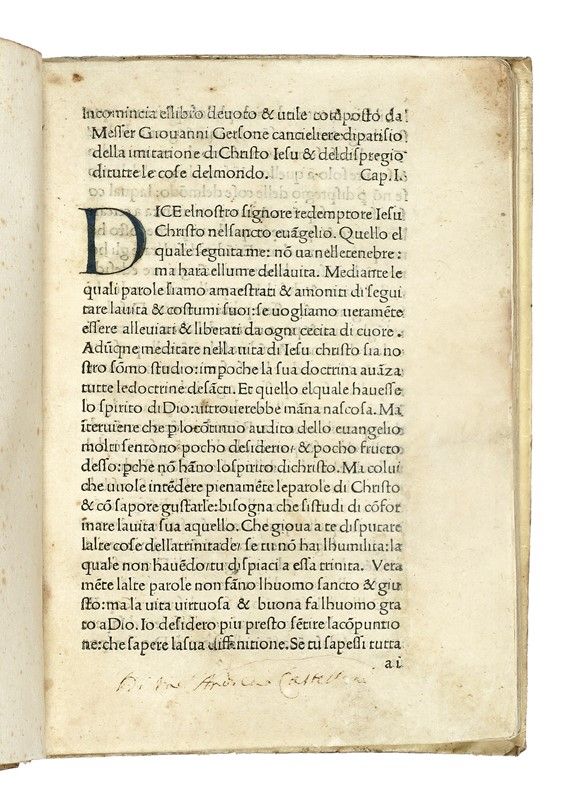 Incomincia ellibro deuoto & utile composto da
Messer Giouanni Gersone cancieliere diparisio
della imitatione di Christo Iesu & deldispregio
ditutte le cose delmondo. Cap. I.
DICE elnostro signore redemptore Iesu
Christo nelsancto euãgelio. Quello el
quale seguita me: nõ ua nelletenebre:
ma hara ellume dellauita. Mediante le
quali parole siamo amaestrati & amoniti di segui
tare lauita & costumi suoi: se uogliamo ueramẽte
essere alleuiati & liberati da ogni cecita di cuore.
Adũque meditare nella uita di Iesu christo sia no
stro sõmo studio: impoche la sua doctrina auãza
tutte ledoctrine desãcti. Et quello elquale hauesse
lo spirito di Dio: uitrouerebbe mãna nascosa. Ma
ĩteruiene che p locõtinuo audito dello euangelio
molti sentono pocho desiderio: & pocho fructo
desso: pche nõ hãno lo spirito dichristo. Ma colui
che uuole intẽdere pienamẽte leparole di Christo
& cõ sapore gustarle: bisogna che sistudi di cõfor
mare lauita sua aquello. Che gioua a te disputare
lalte cose dellatrinitade: se tu nõ hai lhumilita: la
quale non hauẽdo: tu dispiaci a essa trinita. Vera
mẽte lalte parole non fãno lhuomo sancto & giu
sto: ma la uita uirtuosa & buona fa lhuomo gra
to aDio. Io desidero piu presto sẽtire lacõpuntio
ne: che sapere lasua diffinitione. Se tu sapessi tutta
a i
Di Andrea